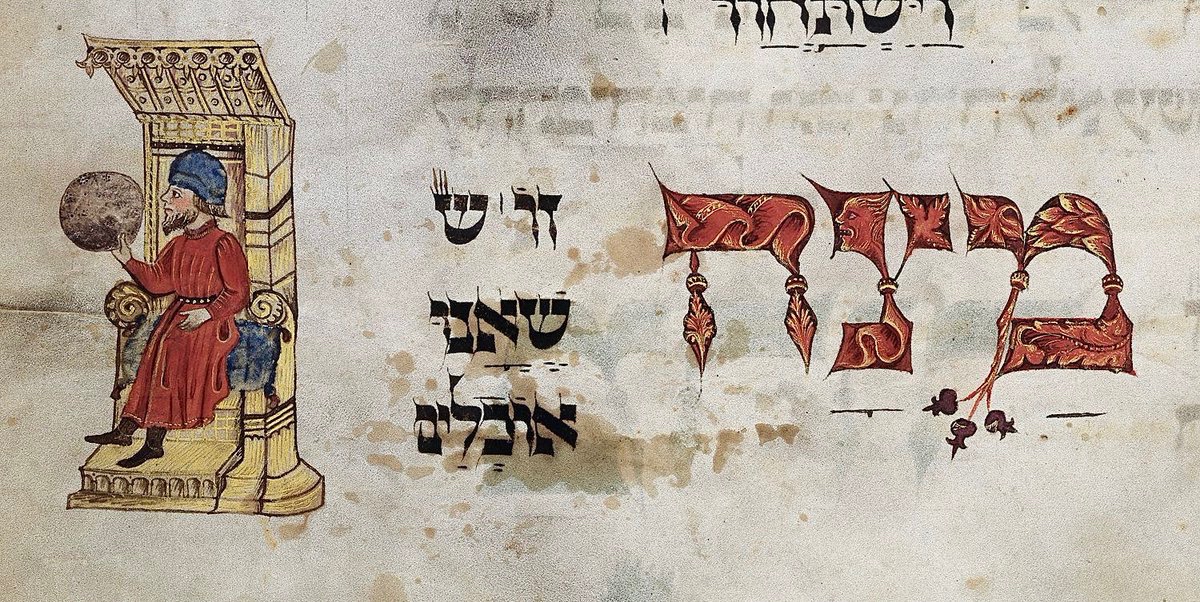 וישתחוו
מצה
זו ש
שאנו
אוכלים